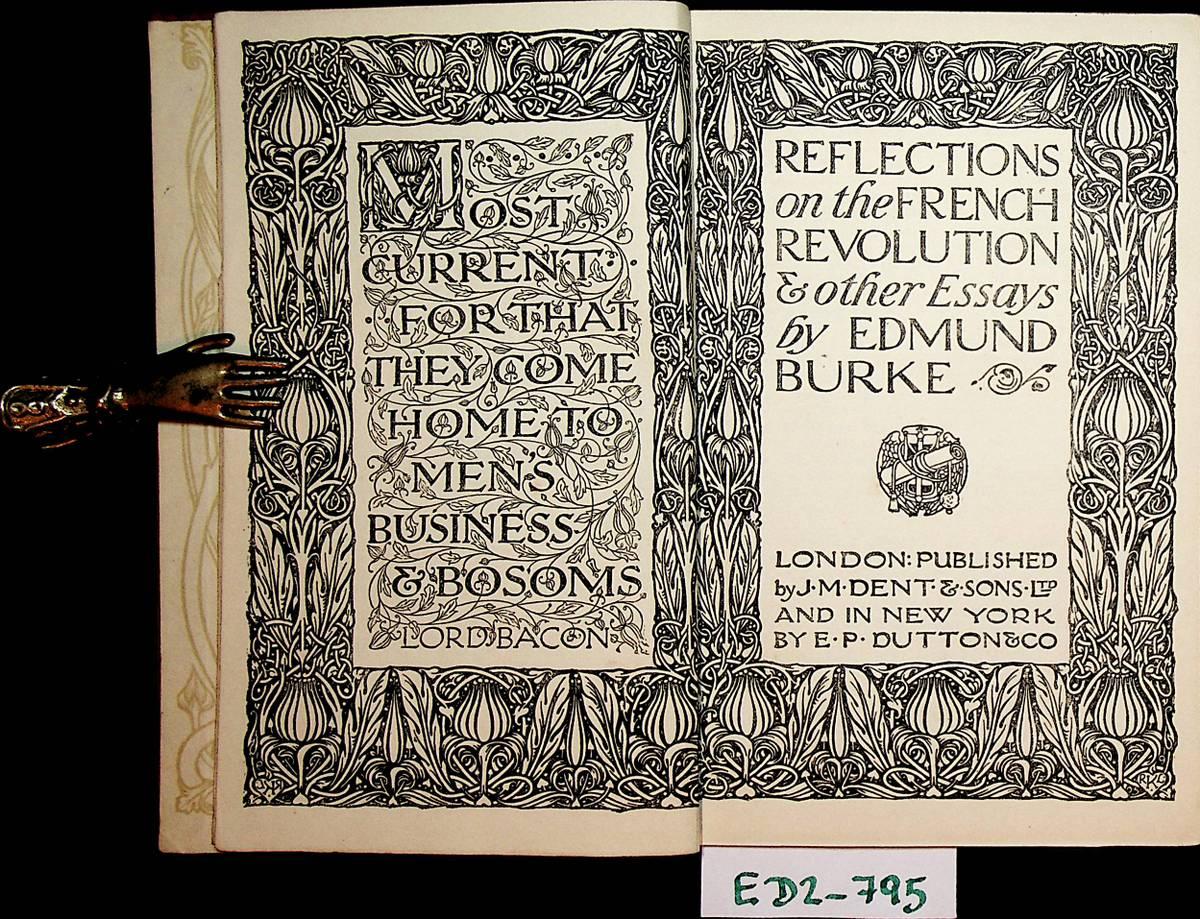 MOST
CURRENT
FOR THAT
THEY COME
HOME TO
MEN'S
BUSINESS
& BOSOMS
LORD BACON
REFLECTIONS
on the FRENCH
REVOLUTION
& other Essays
by EDMUND
BURKE
LONDON: PUBLISHED
by J·M·DENT·&·SONS·LTD
AND IN NEW YORK
BY E·P·DUTTON&CO
ED2-795